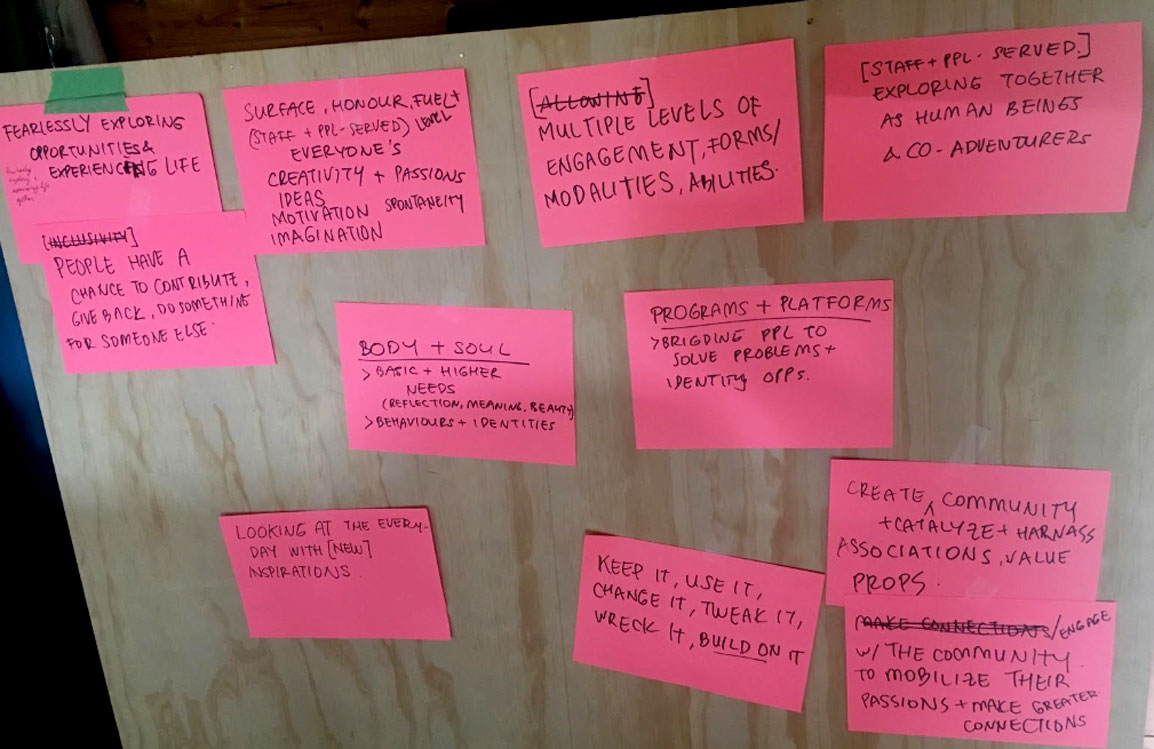 FEARLESSLY EXPLORING
OPPORTUNITIES &
EXPERIENCING LIFE
[INCLUSIVITY]
PEOPLE HAVE A
CHANCE TO CONTRIBUTE,
GIVE BACK, DO SOMETHING
FOR SOMEONE ELSE.
SURFACE, HONOUR, FUEL +
(STAFF + PPL-SERVED) LEVEL
EVERYONE'S
CREATIVITY + PASSIONS
IDEAS
MOTIVATION SPONTANEITY
IMAGINATION
[ALLOWING]
MULTIPLE LEVELS OF
ENGAGEMENT, FORMS/
MODALITIES, ABILITIES.
[STAFF + PPL-SERVED.]
EXPLORING TOGETHER
AS HUMAN BEINGS
& CO-ADVENTURERS
BODY + SOUL
> BASIC + HIGHER
NEEDS
(REFLECTION, MEANING, BEAUTY)
> BEHAVIOURS + IDENTITIES
PROGRAMS + PLATFORMS
> BRIGDING PPL TO
SOLVE PROBLEMS +
IDENTITY OPPS.
LOOKING AT THE EVERY-
DAY WITH [NEW]
INSPIRATIONS.
KEEP IT, USE IT,
CHANGE IT, TWEAK IT,
WRECK IT, BUILD ON IT
CREATE COMMUNITY
+ CATALYZE + HARNASS
ASSOCIATIONS, VALUE
PROPS.
MAKE CONNECTIONS/ENGAGE
W/ THE COMMUNITY
TO MOBILIZE THEIR
PASSIONS + MAKE GREATER
CONNECTIONS